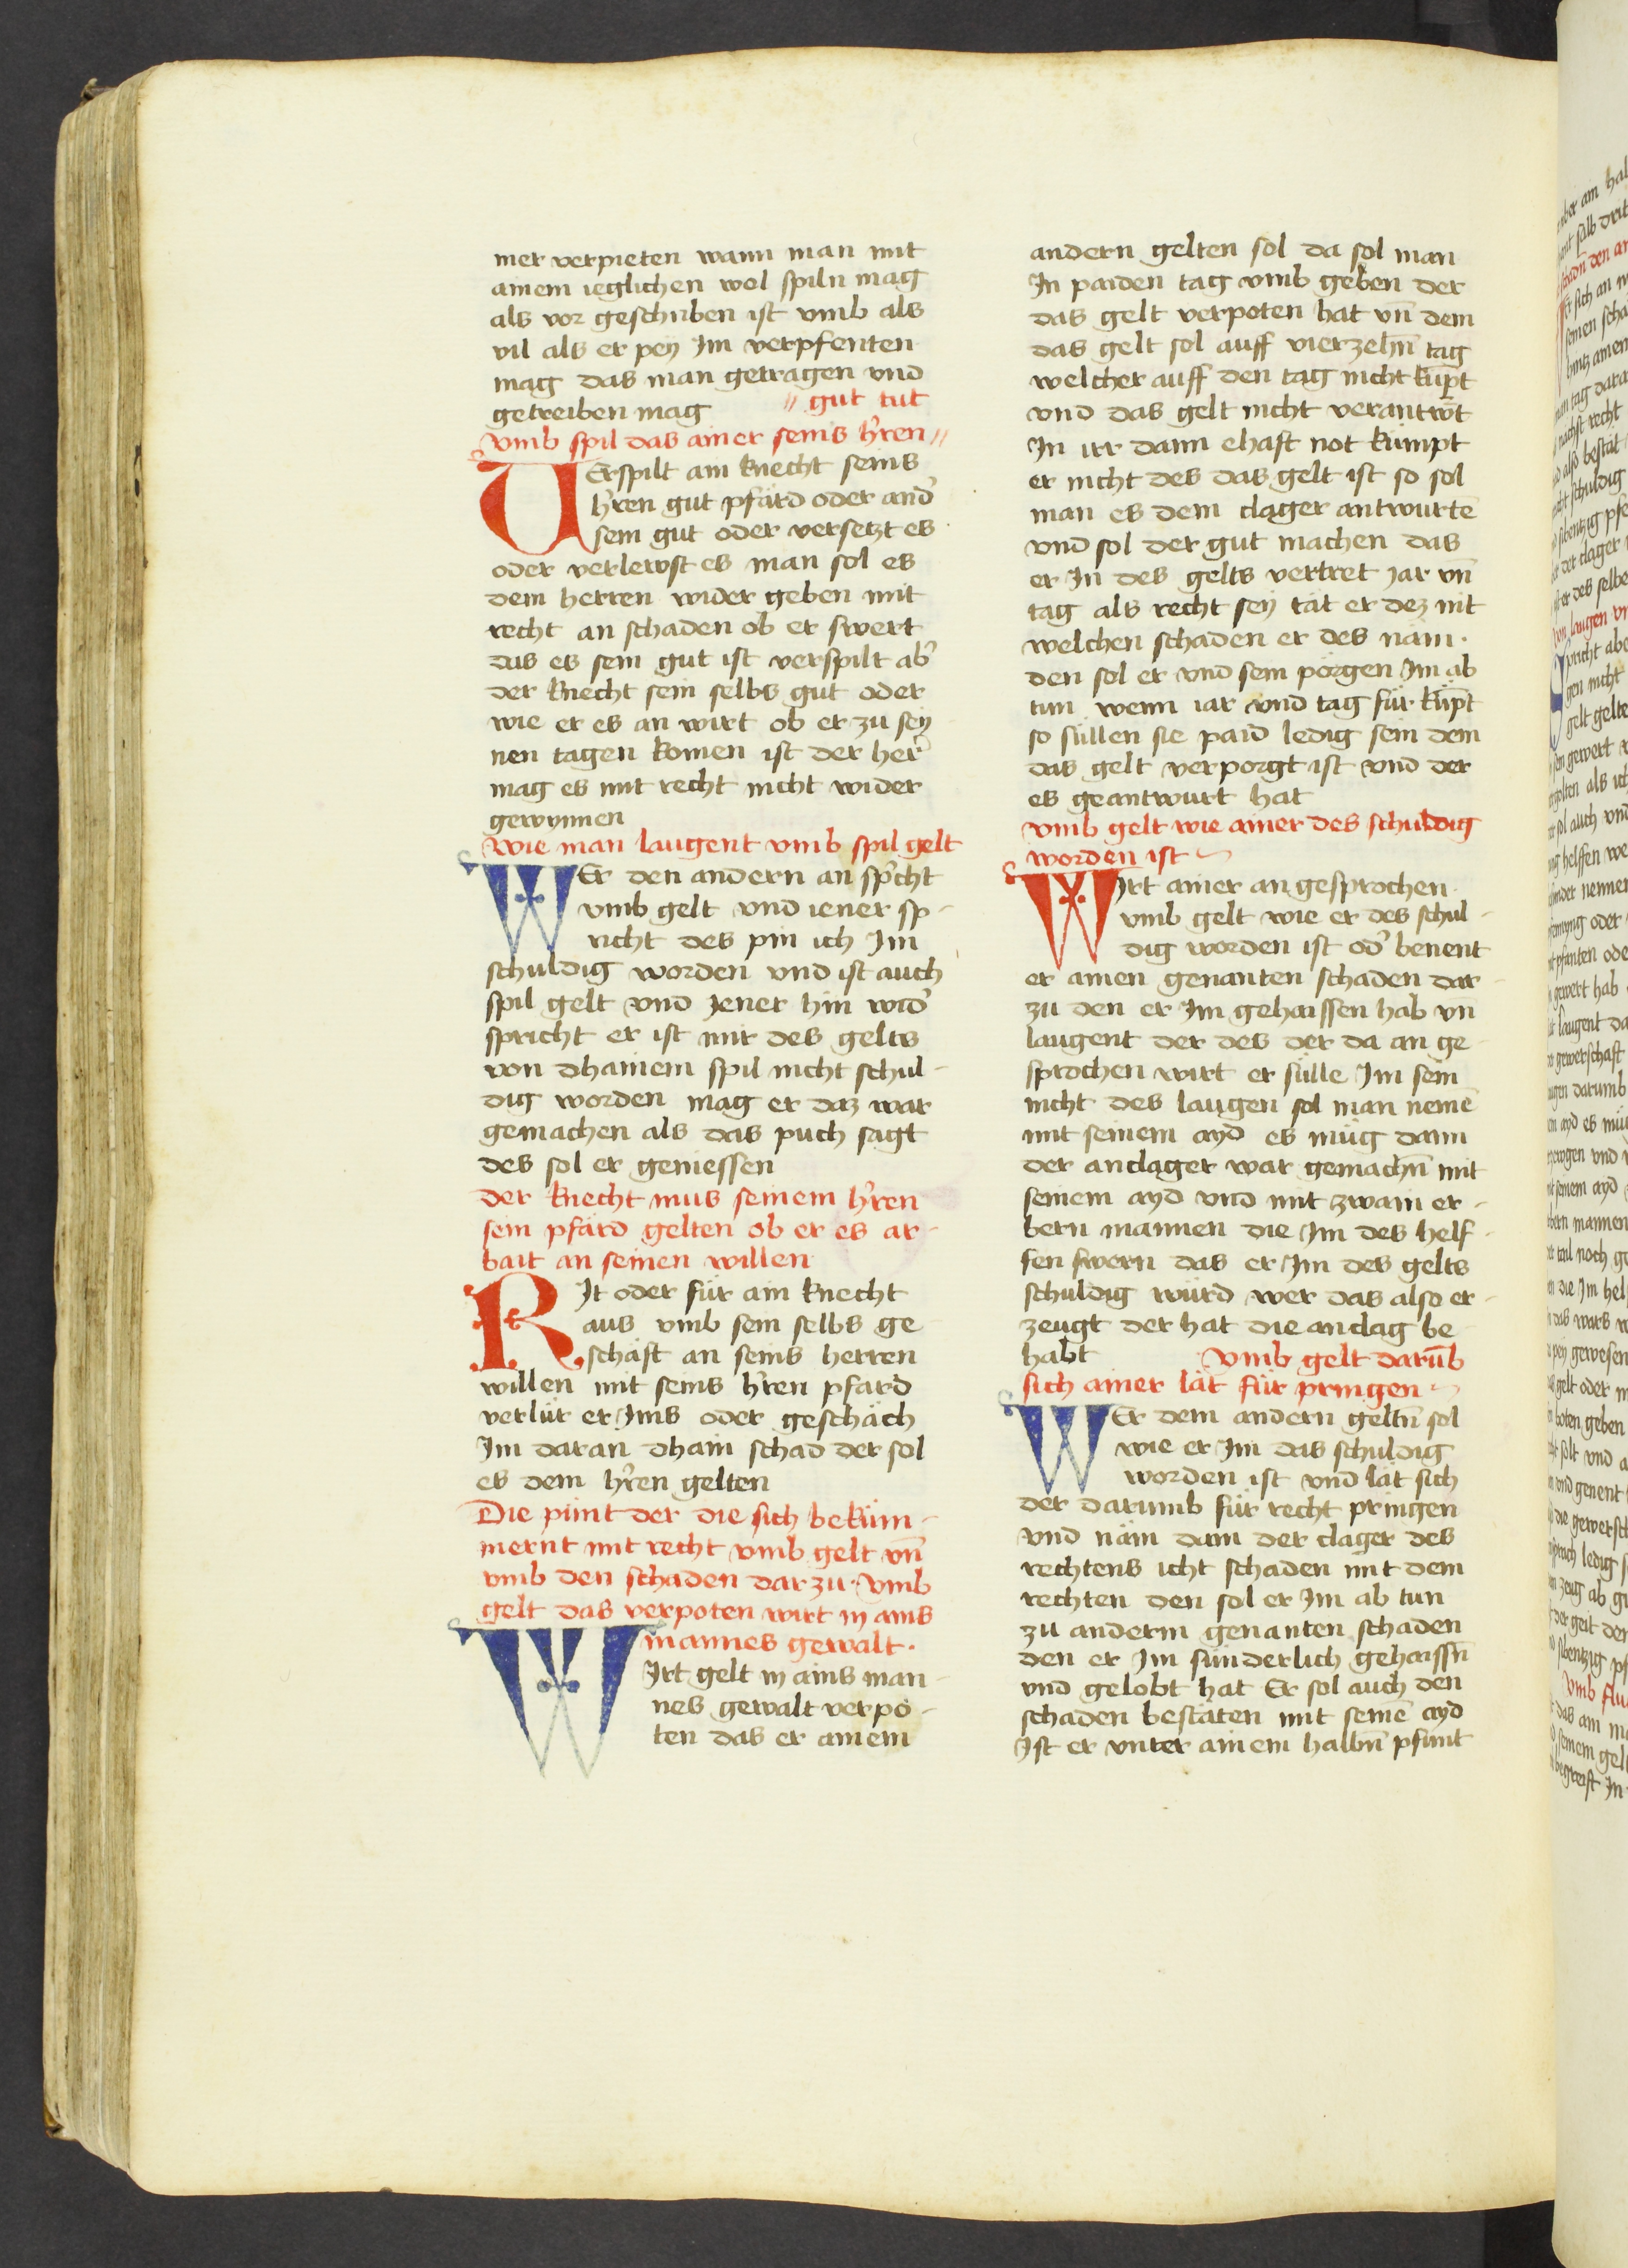 mer verpieten wann man mit
ainem ieglichen wol spiln mag
als vor geschriben ist vmb als
vil als er pey Im verpfenten
mag das man getragen vnd
getreiben mag // gut tut
vmb spil das ainer seins hr̄en //
VErspilt ain knecht seins
hr̄en gut pfärd oder and̄
sein gut oder versetzt es
oder verlewst es man sol es
dem herren wider geben mit
recht an schaden ob er swert
das es sein gut ist verspilt ab̄
der knecht sein selbs gut oder
wie er es an wirt ob er zu sey
nen tagen komen ist der her̄
mag es mit recht nicht wider
gewynnen
Wie man laugent vmb spil gelt
WEr den andern an sp̄cht
vmb gelt vnd iener sp-
richt des pin ich Im
schuldig worden vnd ist auch
spil gelt vnd Jener hin wid̄
spricht er ist mir des gelts
von dhainem spil nicht schul-
dig worden mag er daz war
gemachen als das puch sagt
des sol er geniessen
der knecht mus seinem hr̄en
sein pfärd gelten ob er es ar-
bait an seinen willen
RJt oder für ain knecht
aus vmb sein selbs ge
schäft an seins herren
willen mit seins hr̄en pfärd
verlür er Ims oder geschäch
Im daran dhain schad der sol
es dem hr̄en gelten
Die pünt der die sich beküm-
mernt mit recht vmb gelt vn̄
vmb den schaden dar zu. Vmb
gelt das verpoten wirt in ains
mannes gewalt.
WJrt gelt in ains man-
nes gewalt verpo-
ten das er ainem
andern gelten sol da sol man
In paiden tag vmb geben der
das gelt verpoten hat vn̄ dem
das gelt sol auff vierzehn̄ tag
welcher auff den tag nicht küp̄t
vnd das gelt nicht verantw̄t
In irr dann ehaft not kümpt
er nicht des das gelt ist so sol
man es dem clager antwurtē
vnd sol der gut machen das
er In des gelts vertret jar vn̄
tag als recht sey tät er dez nit
welchen schaden er des näm.
den sol er vnd sein pörgen Im ab
tun wenn iar vnd tag für küp̄t
so süllen sie paid ledig sein dem
das gelt verporgt ist vnd der
es geantwurt hat
vmb gelt wie ainer des schuldig
worden ist
WIrt ainer an gesprochen
vmb gelt wie er des schul-
dig worden ist od̄ benent
er ainen genanten schaden dar-
zu den er Im gehaissen hab vn̄
laugent der des der da an ge
sprochen wirt er sülle Im sein
nicht des laugen sol man nemē
mit seinem ayd es müg dann
der anclager war gemachn̄ mit
seinem ayd vnd mit zwain er-
bern mannen die Im des helf-
fen swern das er Im des gelts
schuldig würd wer das also er-
zeugt der hat die anclag be
habt Vmb gelt darūb
sich ainer lät für pringen
WEr dem andern geltn̄ sol
wie er Im das schuldig
worden ist vnd lät sich
der darumb für recht pringen
vnd näm dann der clager des
rechtens icht schaden mit dem
rechten den sol er Im ab tun
zu anderm genanten schaden
den er Im sünderlich gehaissn̄
vnd gelobt hat Er sol auch den
schaden bestäten mit seinē ayd
Ist er vnter ainem halbn̄ pfunt